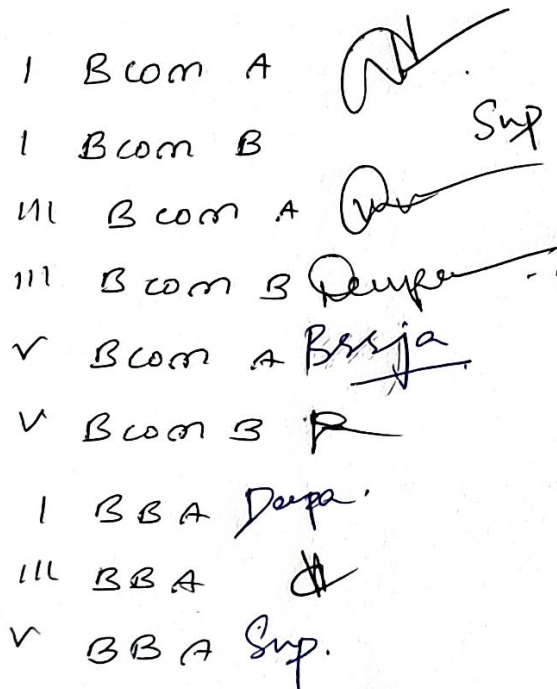 I BCom A
I BCom B Sup
III BCom A
III BCom B Deepa
V BCom A
V BCom B
I BBA Deepa.
III BBA
V BBA Sup.